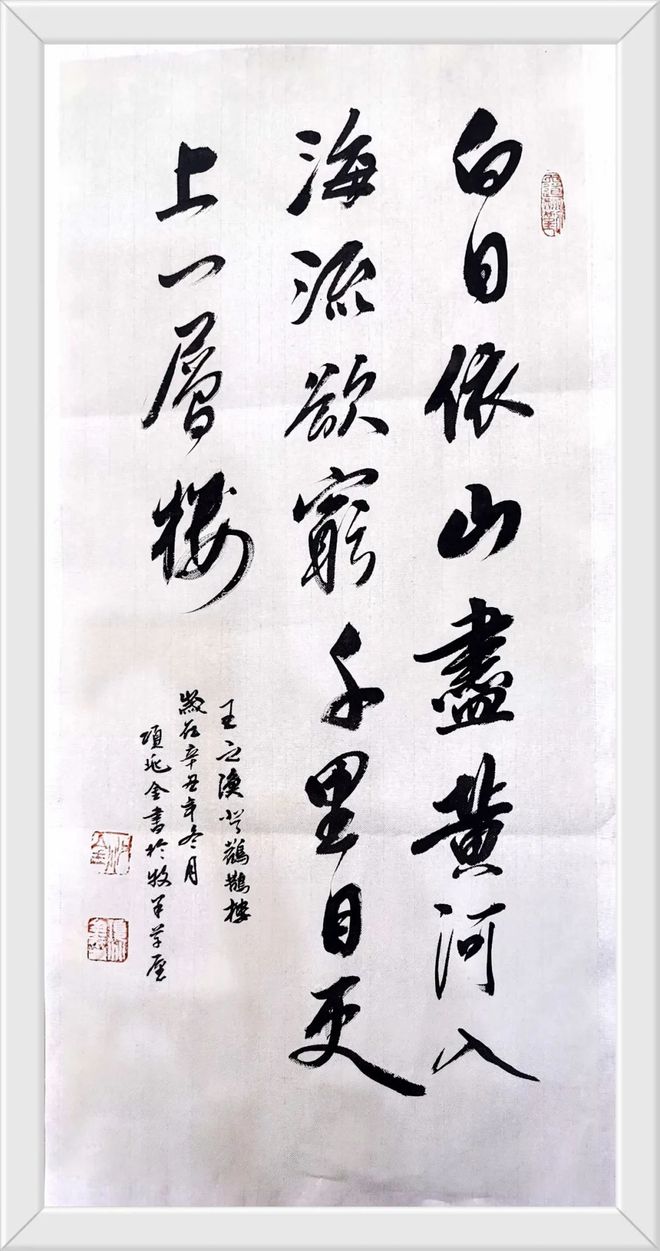 白日依山盡黄河入
海流欲窮千里目更
上一層樓
王之渙登鸛鵲樓
歲在辛丑年冬月
項兆金書於牧羊草廬